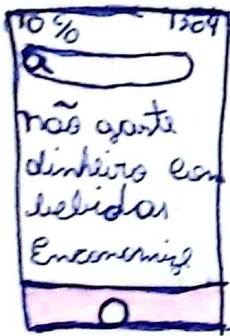 70% 1304
não gaste
dinheiro com
bebidas
Enconomize